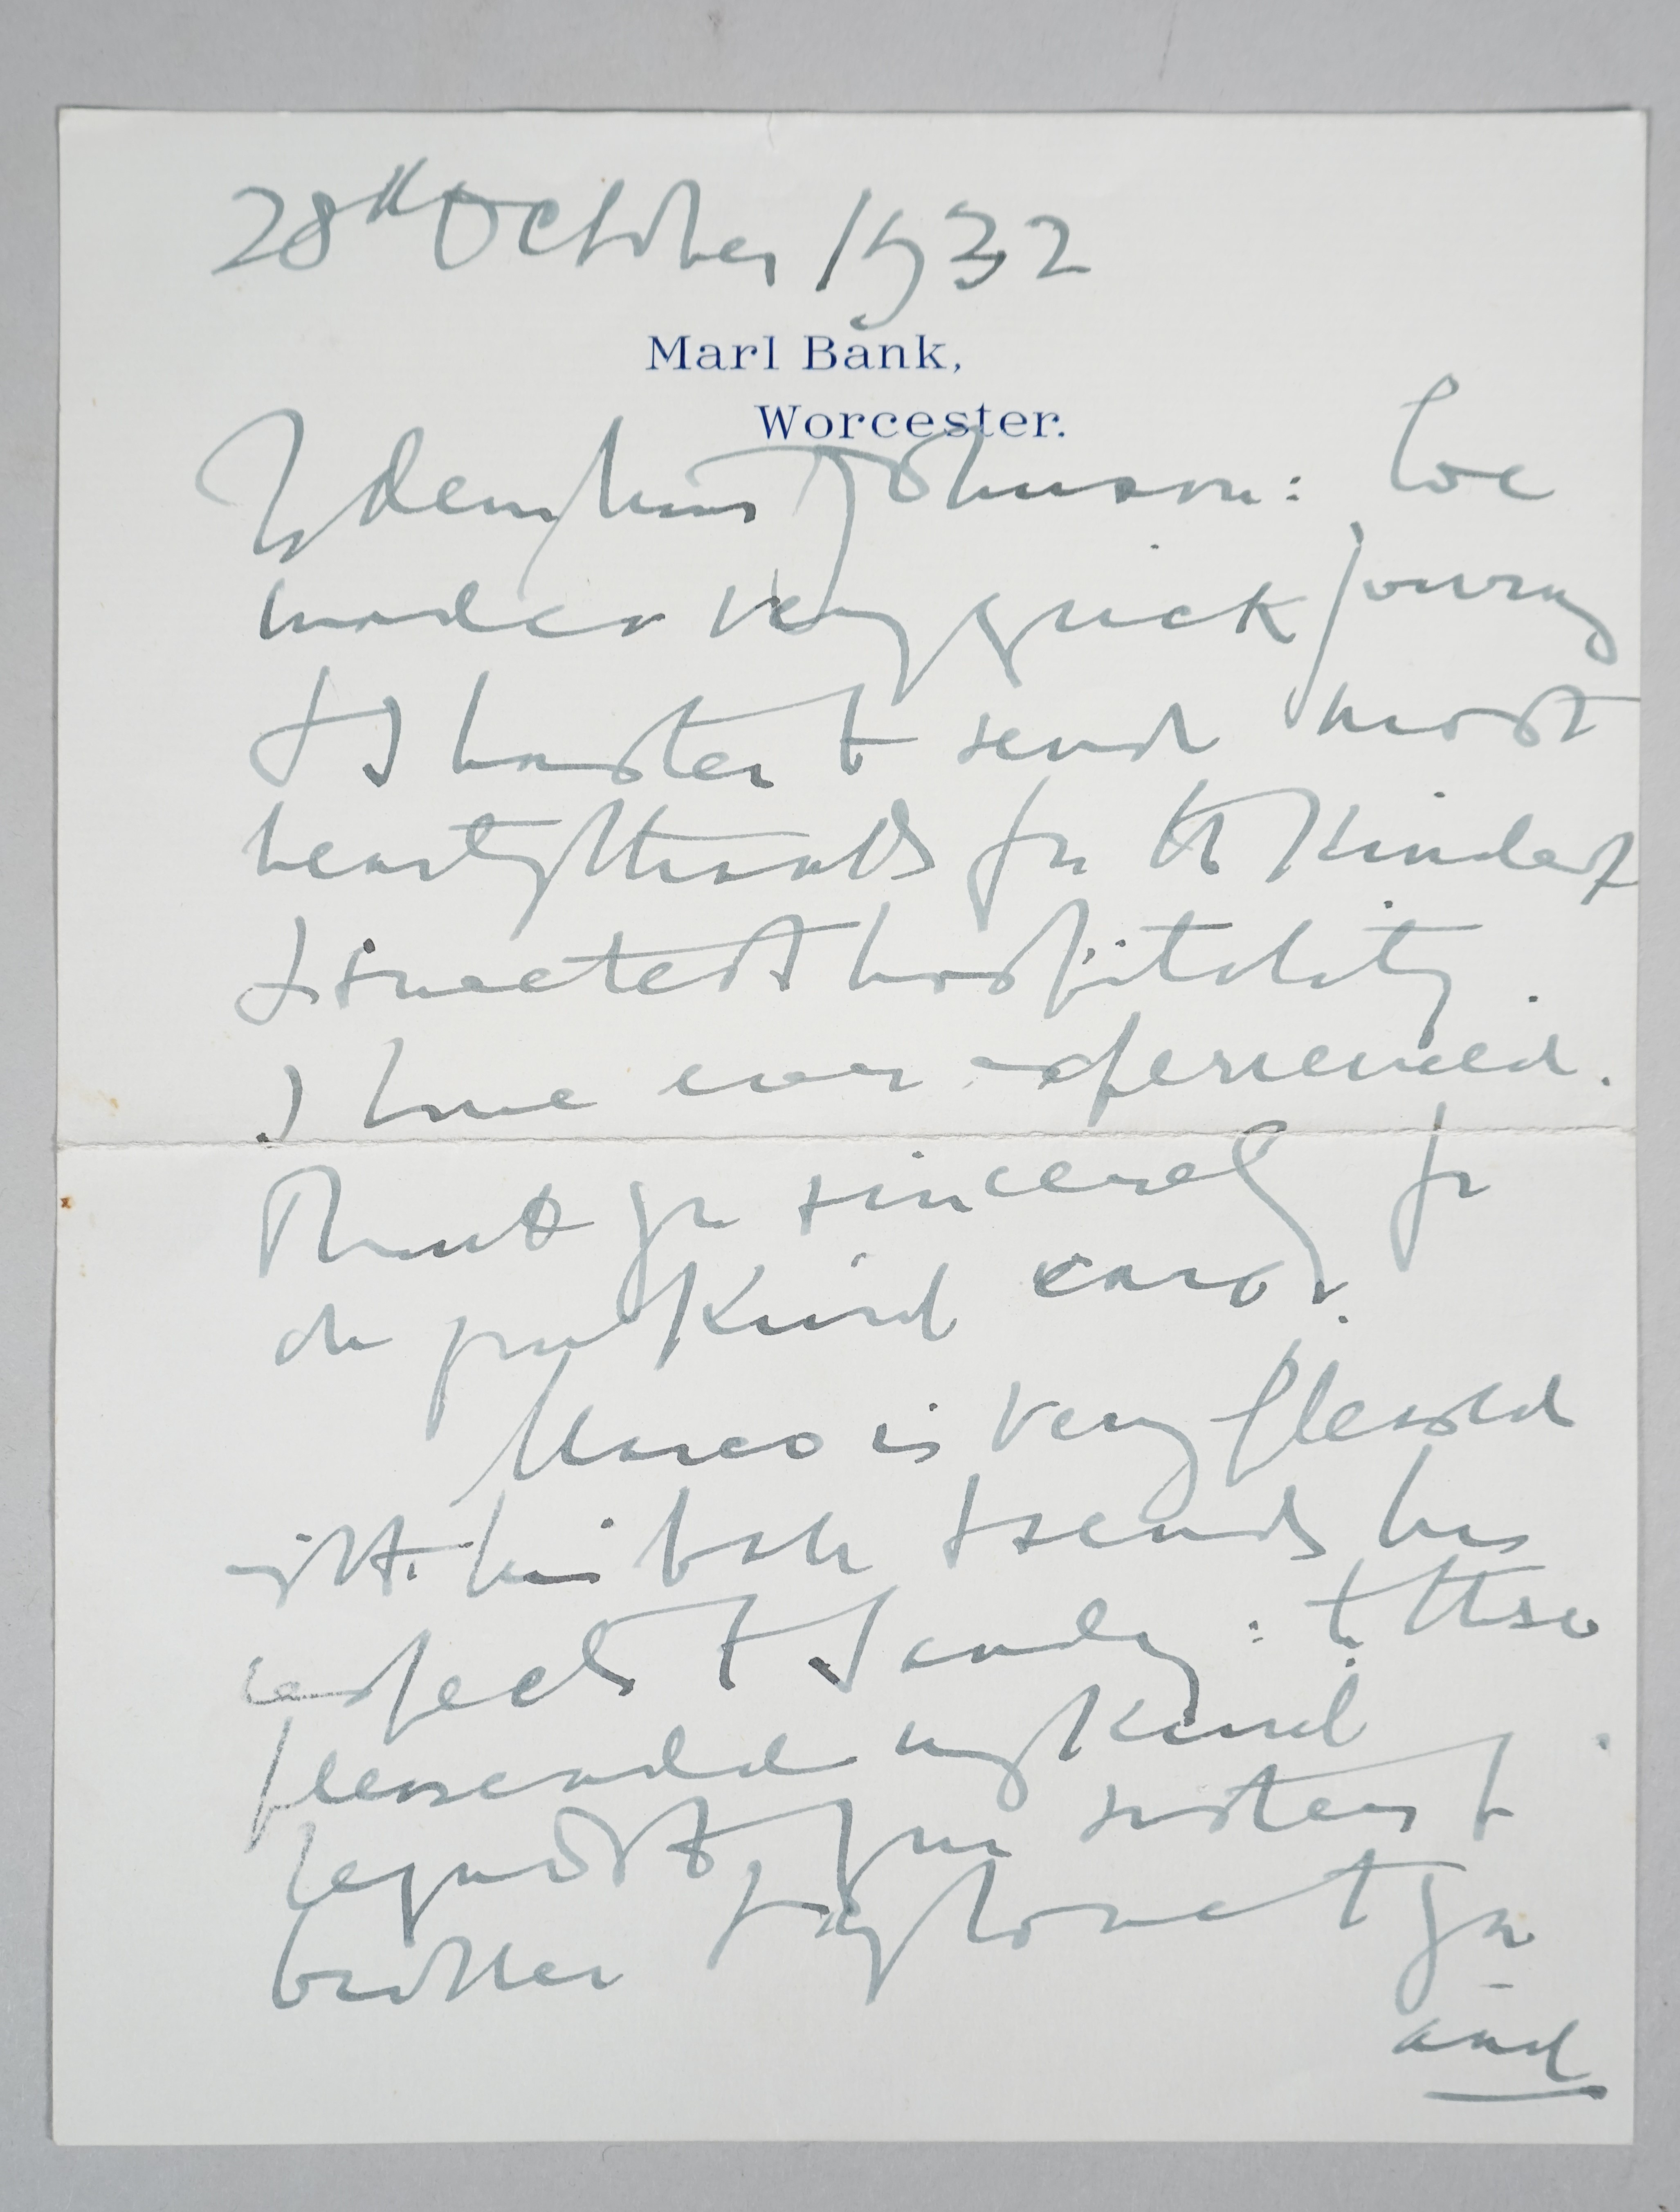 28th October 1932
Marl Bank,
Worcester.
My dear Miss Johnson: We
made a very quick journey
& I hasten to send most
hearty thanks for the kindest
& sweetest hospitality
I have ever experienced.
Thank you sincerely for
all your kind care.
Marco is very pleased
with his ball & sends his
respects to Sandy: to these
please add my kind
regards to your sister &
brother & my love to you
and